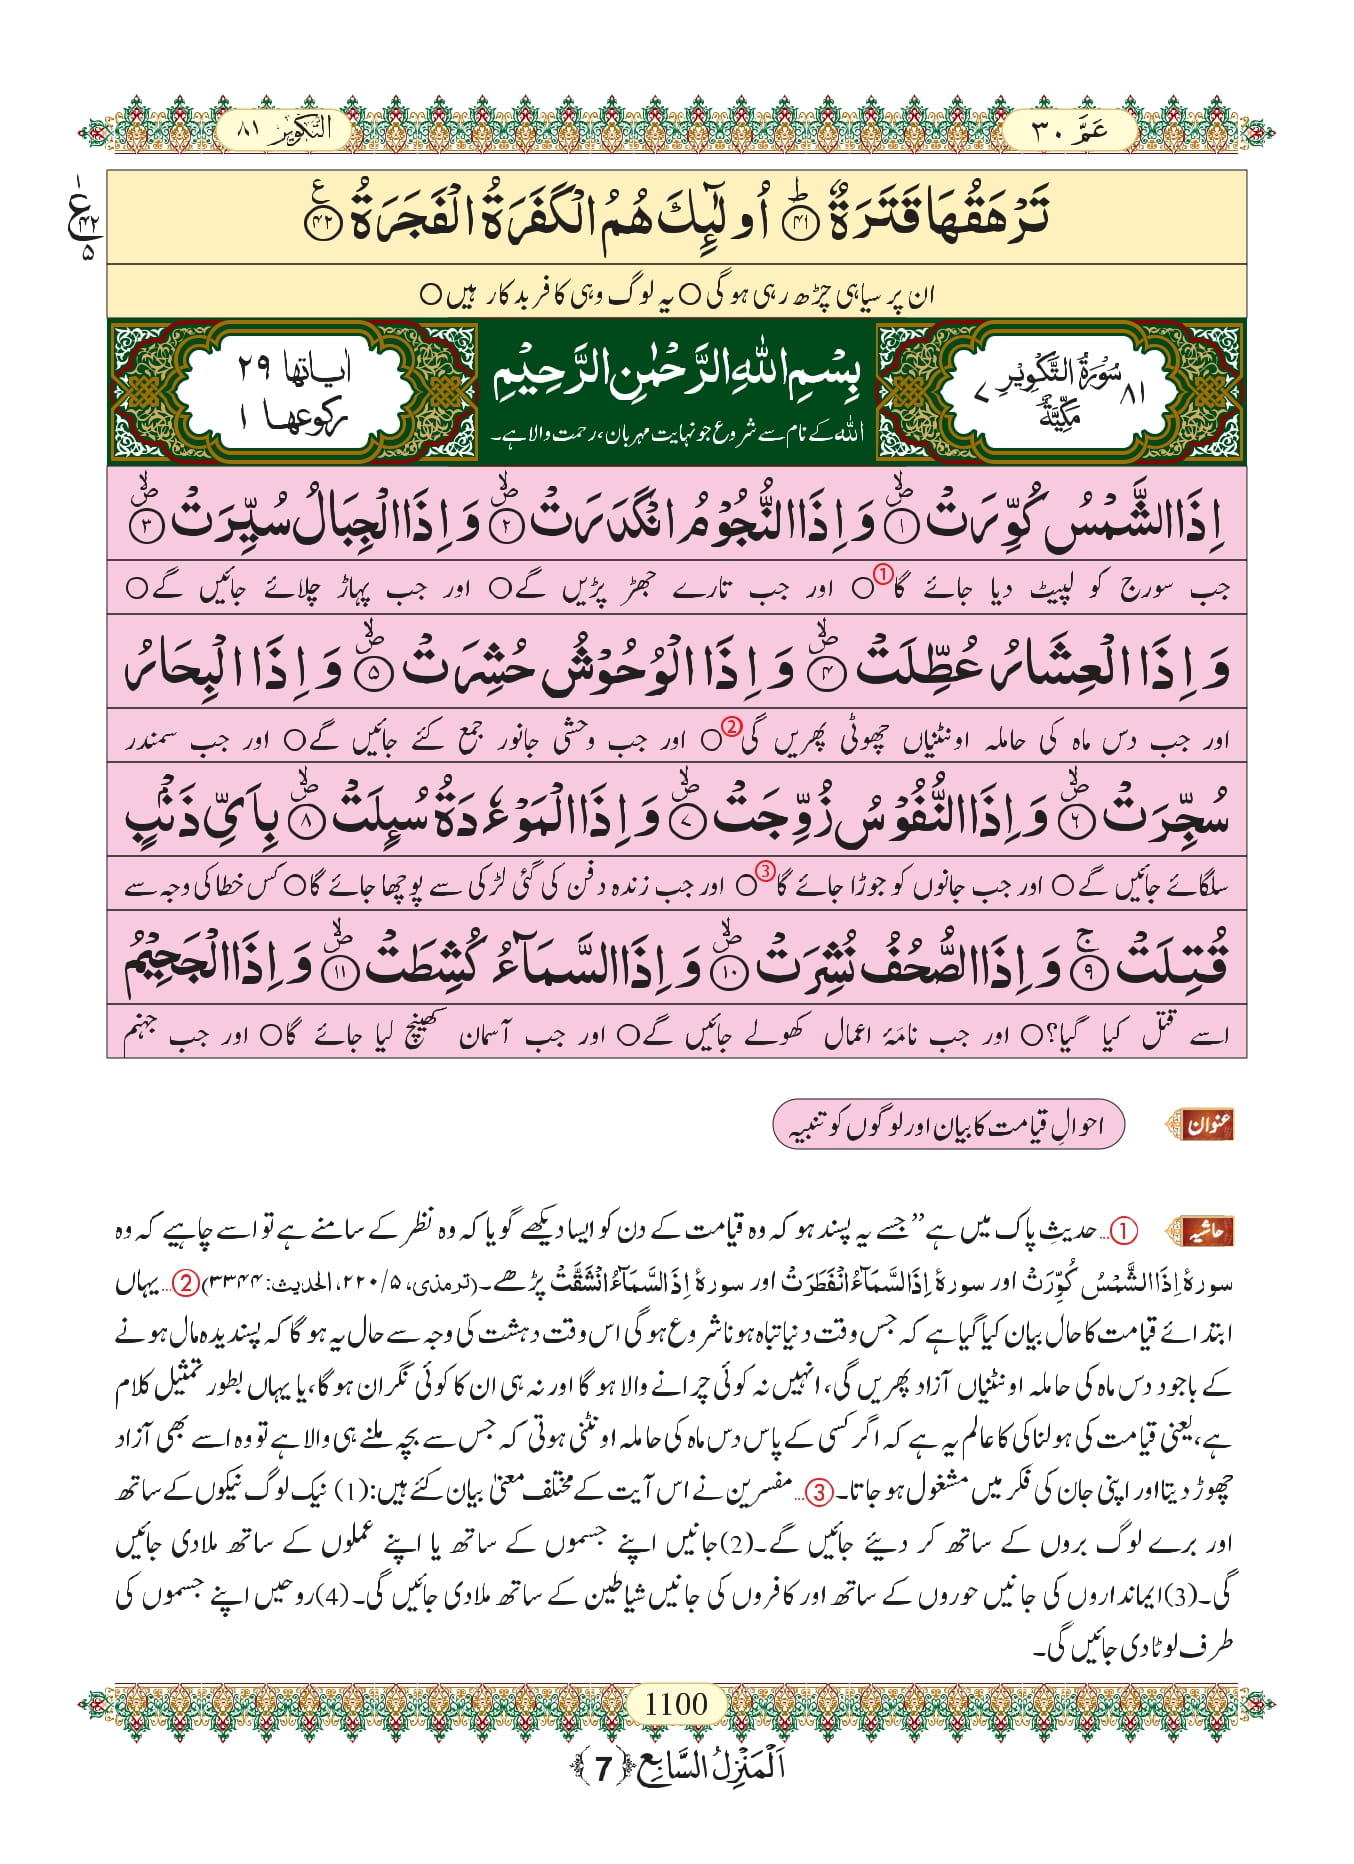 عَمَّ ٣٠
التَّكْوِيْر ٨١
تَرْهَقُهَا قَتَرَةٌ ﴿٤١﴾ؕ اُولٰٓئِكَ هُمُ الْكَفَرَةُ الْفَجَرَةُ ﴿٤٢﴾۠
ع ٤٢ ٥
ان پر سیاہی چڑھ رہی ہوگی ○ یہ لوگ وہی کافر بدکار ہیں ○
٨١ سُوْرَةُ التَّكْوِيْرِ مَكِّيَّةٌ ٧
بِسْمِ اللهِ الرَّحْمٰنِ الرَّحِيْمِ
الله کے نام سے شروع جو نہایت مہربان، رحمت والا ہے۔
اٰیاتھا ٢٩
رکوعھا ١
اِذَا الشَّمْسُ كُوِّرَتْ ﴿١﴾۪ۙ وَ اِذَا النُّجُوْمُ انْكَدَرَتْ ﴿٢﴾۪ۙ وَ اِذَا الْجِبَالُ سُيِّرَتْ ﴿٣﴾۪ۙ
جب سورج کو لپیٹ دیا جائے گا① ○ اور جب تارے جھڑ پڑیں گے ○ اور جب پہاڑ چلائے جائیں گے ○
وَ اِذَا الْعِشَارُ عُطِّلَتْ ﴿٤﴾۪ۙ وَ اِذَا الْوُحُوْشُ حُشِرَتْ ﴿٥﴾۪ۙ وَ اِذَا الْبِحَارُ
اور جب دس ماہ کی حاملہ اونٹنیاں چھوٹی پھریں گی② ○ اور جب وحشی جانور جمع کئے جائیں گے ○ اور جب سمندر
سُجِّرَتْ ﴿٦﴾۪ۙ وَ اِذَا النُّفُوْسُ زُوِّجَتْ ﴿٧﴾۪ۙ وَ اِذَا الْمَوْءٗدَةُ سُىِٕلَتْ ﴿٨﴾۪ۙ بِاَيِّ ذَنْۢبٍ
سلگائے جائیں گے ○ اور جب جانوں کو جوڑا جائے گا③ ○ اور جب زندہ دفن کی گئی لڑکی سے پوچھا جائے گا ○ کس خطا کی وجہ سے
قُتِلَتْ ﴿٩﴾ۚ وَ اِذَا الصُّحُفُ نُشِرَتْ ﴿١٠﴾۪ۙ وَ اِذَا السَّمَآءُ كُشِطَتْ ﴿١١﴾۪ۙ وَ اِذَا الْجَحِيْمُ
اسے قتل کیا گیا؟ ○ اور جب نامۂ اعمال کھولے جائیں گے ○ اور جب آسمان کھینچ لیا جائے گا ○ اور جب جہنم
عنوان
احوالِ قیامت کا بیان اور لوگوں کو تنبیہ
حاشیہ
①... حدیثِ پاک میں ہے ’’جسے یہ پسند ہو کہ وہ قیامت کے دن کو ایسا دیکھے گویا کہ وہ نظر کے سامنے ہے تو اسے چاہیے کہ وہ
سورۂ اِذَا الشَّمْسُ كُوِّرَتْ اور سورۂ اِذَا السَّمَآءُ انْفَطَرَتْ اور سورۂ اِذَا السَّمَآءُ انْشَقَّتْ پڑھے۔(ترمذی، ٥/٢٢٠، الحدیث: ٣٣٤٤) ②... یہاں
ابتدائے قیامت کا حال بیان کیا گیا ہے کہ جس وقت دنیا تباہ ہونا شروع ہوگی اس وقت دہشت کی وجہ سے حال یہ ہوگا کہ پسندیدہ مال ہونے
کے باجود دس ماہ کی حاملہ اونٹنیاں آزاد پھریں گی، انہیں نہ کوئی چرانے والا ہوگا اور نہ ہی ان کا کوئی نگران ہوگا، یا یہاں بطور تمثیل کلام
ہے، یعنی قیامت کی ہولناکی کا عالم یہ ہے کہ اگر کسی کے پاس دس ماہ کی حاملہ اونٹنی ہوتی کہ جس سے بچہ ملنے ہی والا ہے تو وہ اسے بھی آزاد
چھوڑ دیتا اور اپنی جان کی فکر میں مشغول ہو جاتا۔ ③... مفسرین نے اس آیت کے مختلف معنیٰ بیان کئے ہیں:(1) نیک لوگ نیکوں کے ساتھ
اور برے لوگ بروں کے ساتھ کر دیئے جائیں گے۔(2)جانیں اپنے جسموں کے ساتھ یا اپنے عملوں کے ساتھ ملادی جائیں
گی۔(3)ایمانداروں کی جانیں حوروں کے ساتھ اور کافروں کی جانیں شیاطین کے ساتھ ملادی جائیں گی۔ (4)روحیں اپنے جسموں کی
طرف لوٹادی جائیں گی۔
1100
اَلْمَنْزِلُ السَّابِع ﴿7﴾